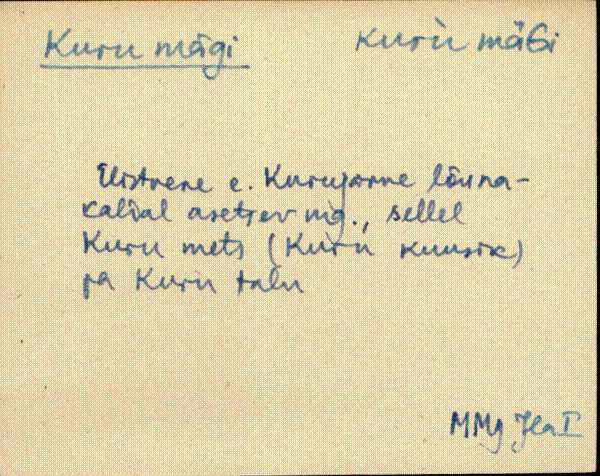 Kuru mägi
Kuru̇̀ mäGi
Elistvere e. Kurujärve lõuna-
kaldal asetsev mg., sellel
Kuru mets (Kuru̇̀ kuusik)
ja Kuru talu
MMg Jla I